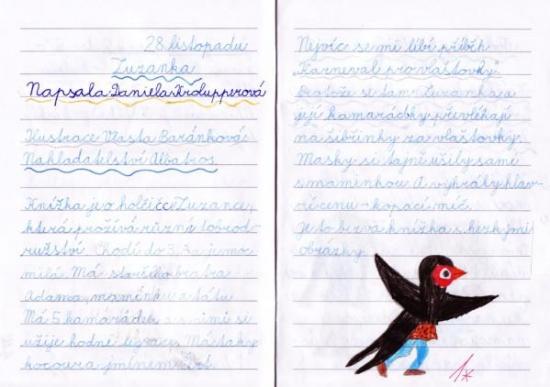 28. listopadu
Zuzanka
Napsala Daniela Krolupperová
Ilustrace Vlasta Baránková
Nakladatelství Albatros
Knížka je o holčičce Zuzance,
která prožívá různé dobrod-
ružství. Chodí do 3. 
milá. Má staršího bratra
Adama, maminku a tátu
Má 5 kamarádek a s nimi si
užije hodně legrace. Má taky
kocoura jménem
Nejvíc se mi líbí příběh
„Karneval pro vlaštovky"
Protože se tam Zuzanka a
její kamarádky převlékají
na šibřinky za vlaštovky.
Masky si tajně ušily samy
s maminkou. A vyhrály hlav-
ní cenu - kopací míč.
Je to bezva knížka s hezkými
obrázky.
1*